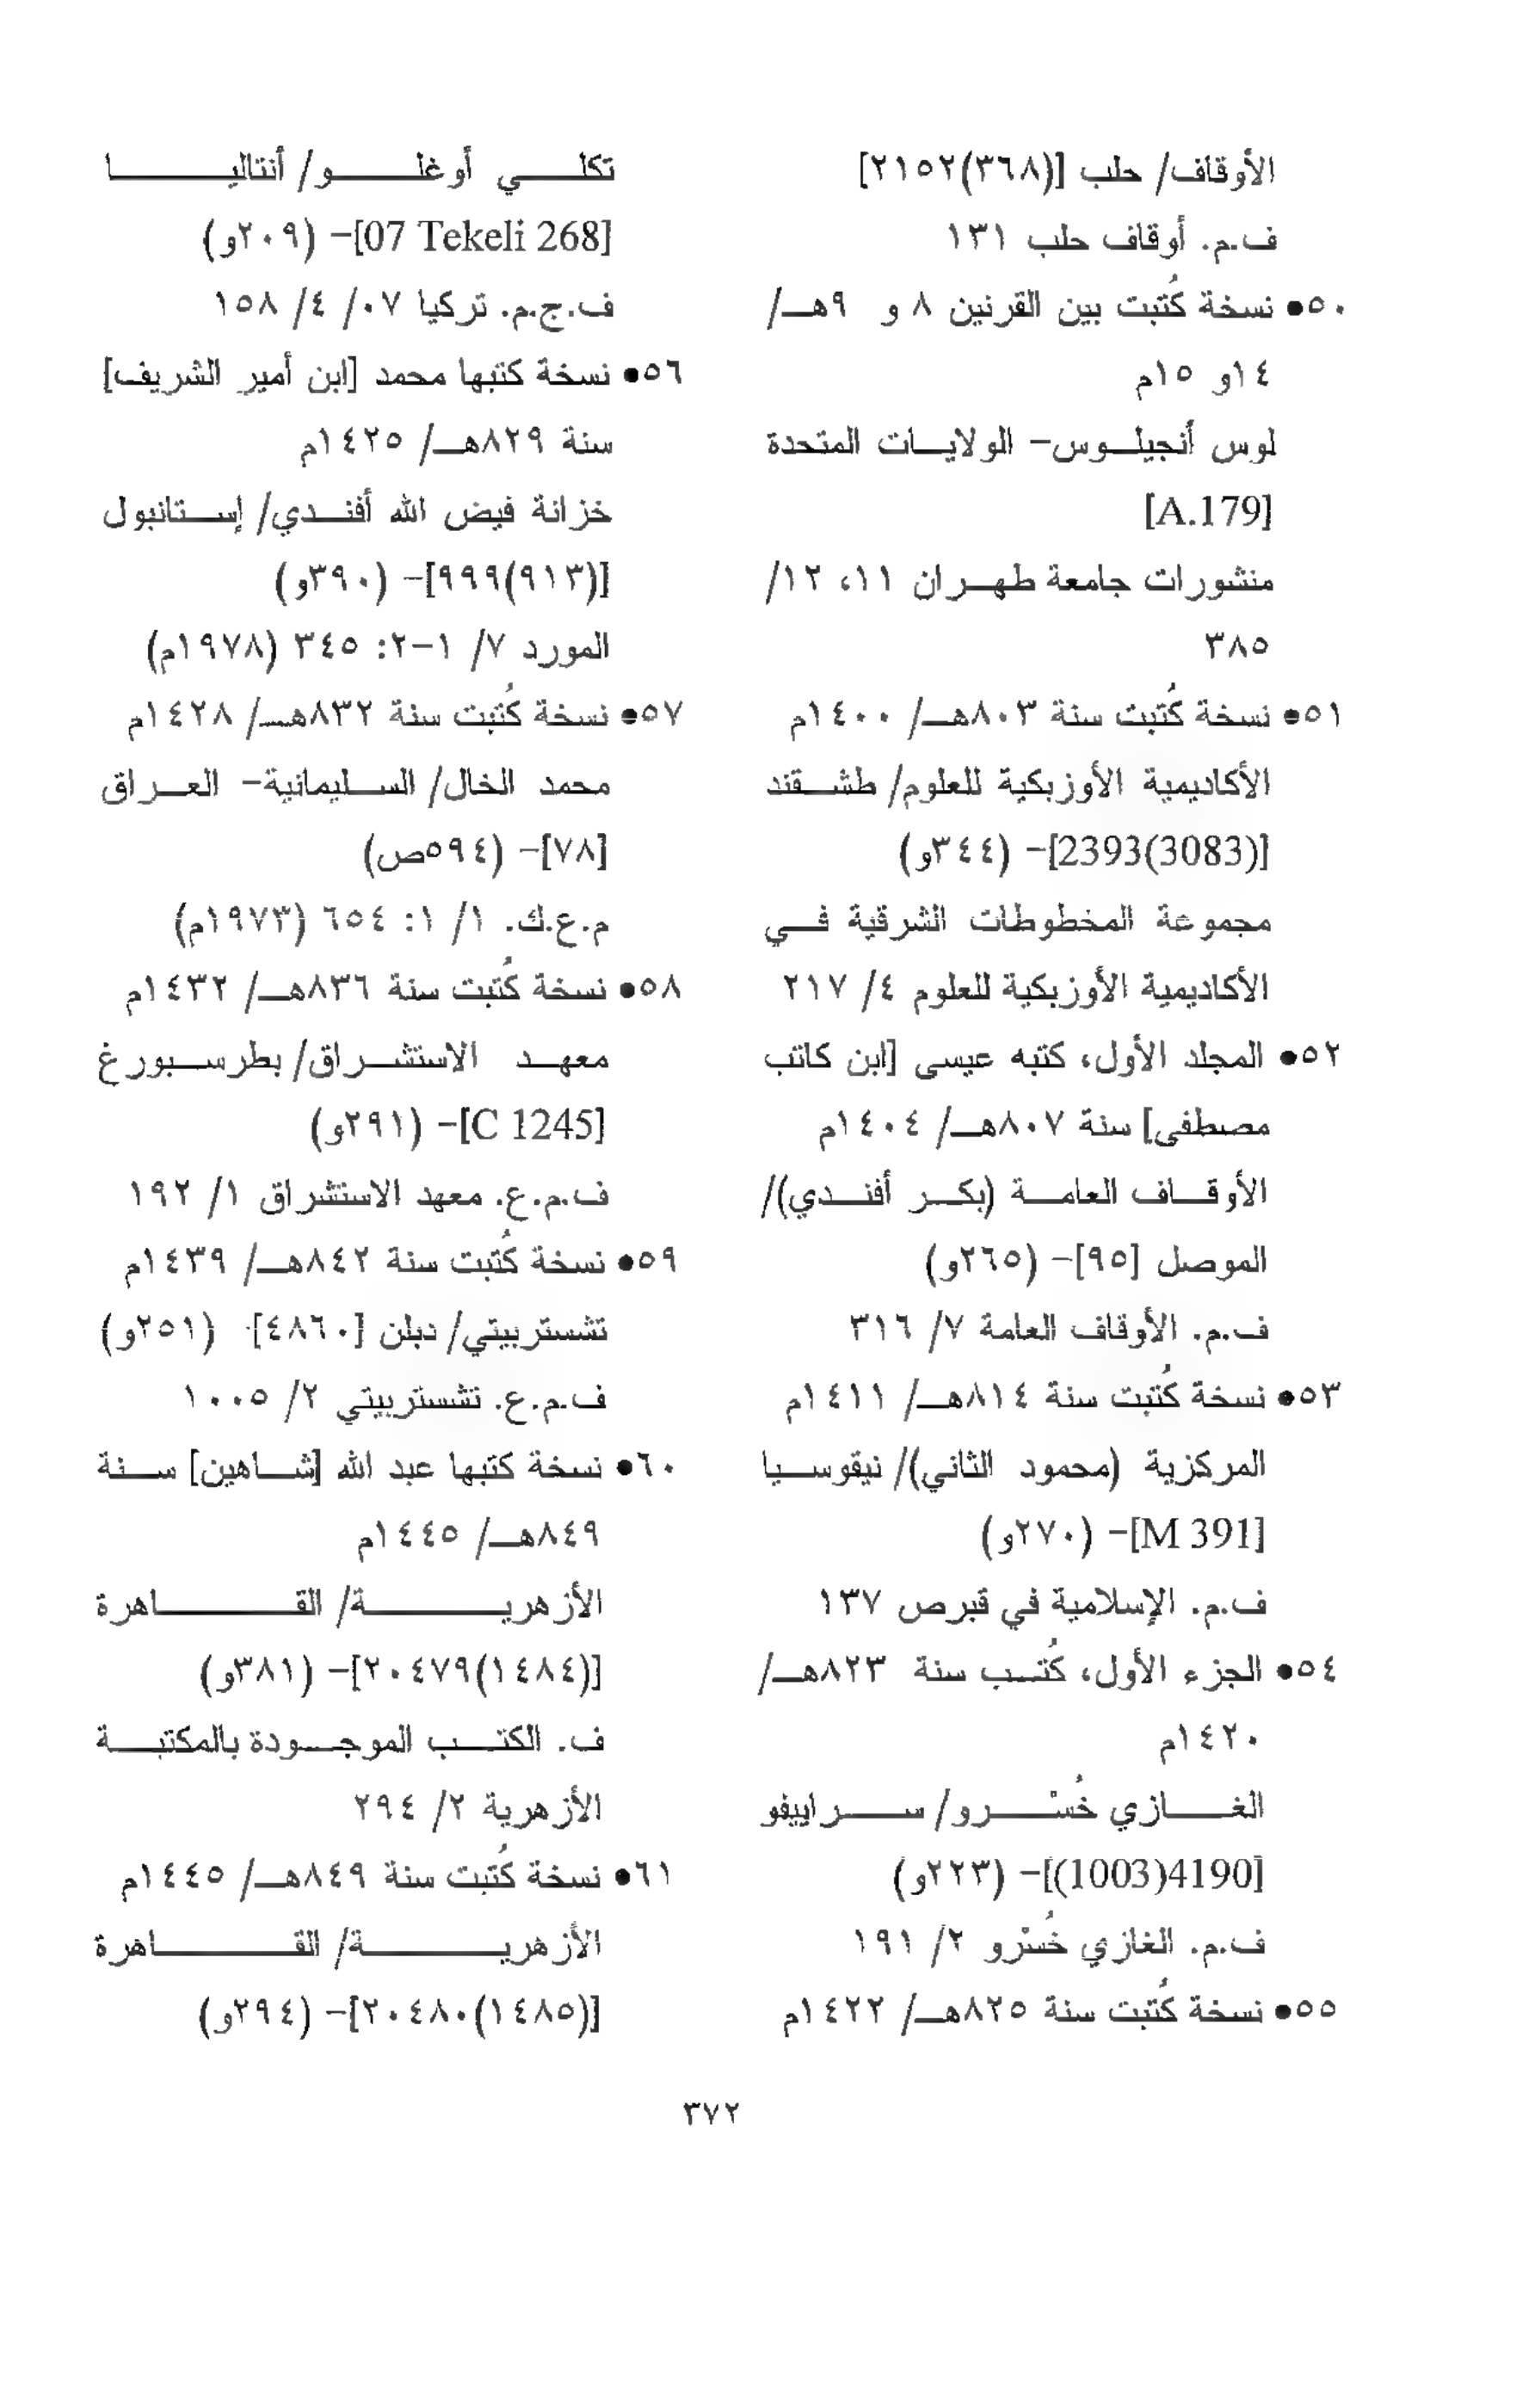 الأوقاف/ حلب [(٣٦٨)٢١٥٢]
ف.م. أوقاف حلب ١٣١
٥٠● نسخة كُتبت بين القرنين ٨ و ٩هـ/
١٤و ١٥م
لوس أنجيلوس- الولايات المتحدة
[A.179]
منشورات جامعة طهران ١١، ١٢/
٣٨٥
٥١● نسخة كُتبت سنة ٨٠٣هـ/ ١٤٠٠م
الأكاديمية الأوزبكية للعلوم/ طشقند
[2393(3083)]- (٣٤٤و)
مجموعة المخطوطات الشرقية في
الأكاديمية الأوزبكية للعلوم ٤/ ٢١٧
٥٢● المجلد الأول، كتبه عيسى [ابن كاتب
مصطفى] سنة ٨٠٧هـ/ ١٤٠٤م
الأوقاف العامة (بكر أفندي)/
الموصل [٩٥]- (٢٦٥و)
ف.م. الأوقاف العامة ٧/ ٣١٦
٥٣● نسخة كُتبت سنة ٨١٤هـ/ ١٤١١م
المركزية (محمود الثاني)/ نيقوسيا
[M 391]- (٢٧٠و)
ف.م. الإسلامية في قبرص ١٣٧
٥٤● الجزء الأول، كُتب سنة ٨٢٣هـ/
١٤٢٠م
الغازي خُسْرو/ سراييفو
[(1003)4190]- (٢٢٣و)
ف.م. الغازي خُسْرو ٢/ ١٩١
٥٥● نسخة كُتبت سنة ٨٢٥هـ/ ١٤٢٢م
تكلي أوغلو/ أنتاليا
[07 Tekeli 268]- (٢٠٩و)
ف.ج.م. تركيا ٠٧/ ٤/ ١٥٨
٥٦● نسخة كتبها محمد [ابن أمير الشريف]
سنة ٨٢٩هـ/ ١٤٢٥م
خزانة فيض الله أفندي/ إستانبول
[(٩١٣)٩٩٩]- (٣٩٠و)
المورد ٧/ ١-٢: ٣٤٥ (١٩٧٨م)
٥٧● نسخة كُتبت سنة ٨٣٢هـ/ ١٤٢٨م
محمد الخال/ السليمانية- العراق
[٧٨]- (٥٩٤ص)
م.ع.ك. ١/ ١: ٦٥٤ (١٩٧٣م)
٥٨● نسخة كُتبت سنة ٨٣٦هـ/ ١٤٣٢م
معهد الاستشراق/ بطرسبورغ
[C 1245]- (٢٩١و)
ف.م.ع. معهد الاستشراق ١/ ١٩٢
٥٩● نسخة كُتبت سنة ٨٤٢هـ/ ١٤٣٩م
تشستربيتي/ دبلن [٤٨٦٠]- (٢٥١و)
ف.م.ع. تشستربيتي ٢/ ١٠٠٥
٦٠● نسخة كتبها عبد الله [شاهين] سنة
٨٤٩هـ/ ١٤٤٥م
الأزهرية/ القاهرة
[(١٤٨٤)٢٠٤٧٩]- (٣٨١و)
ف. الكتب الموجودة بالمكتبة
الأزهرية ٢/ ٢٩٤
٦١● نسخة كُتبت سنة ٨٤٩هـ/ ١٤٤٥م
الأزهرية/ القاهرة
[(١٤٨٥)٢٠٤٨٠]- (٢٩٤و)
٣٧٢